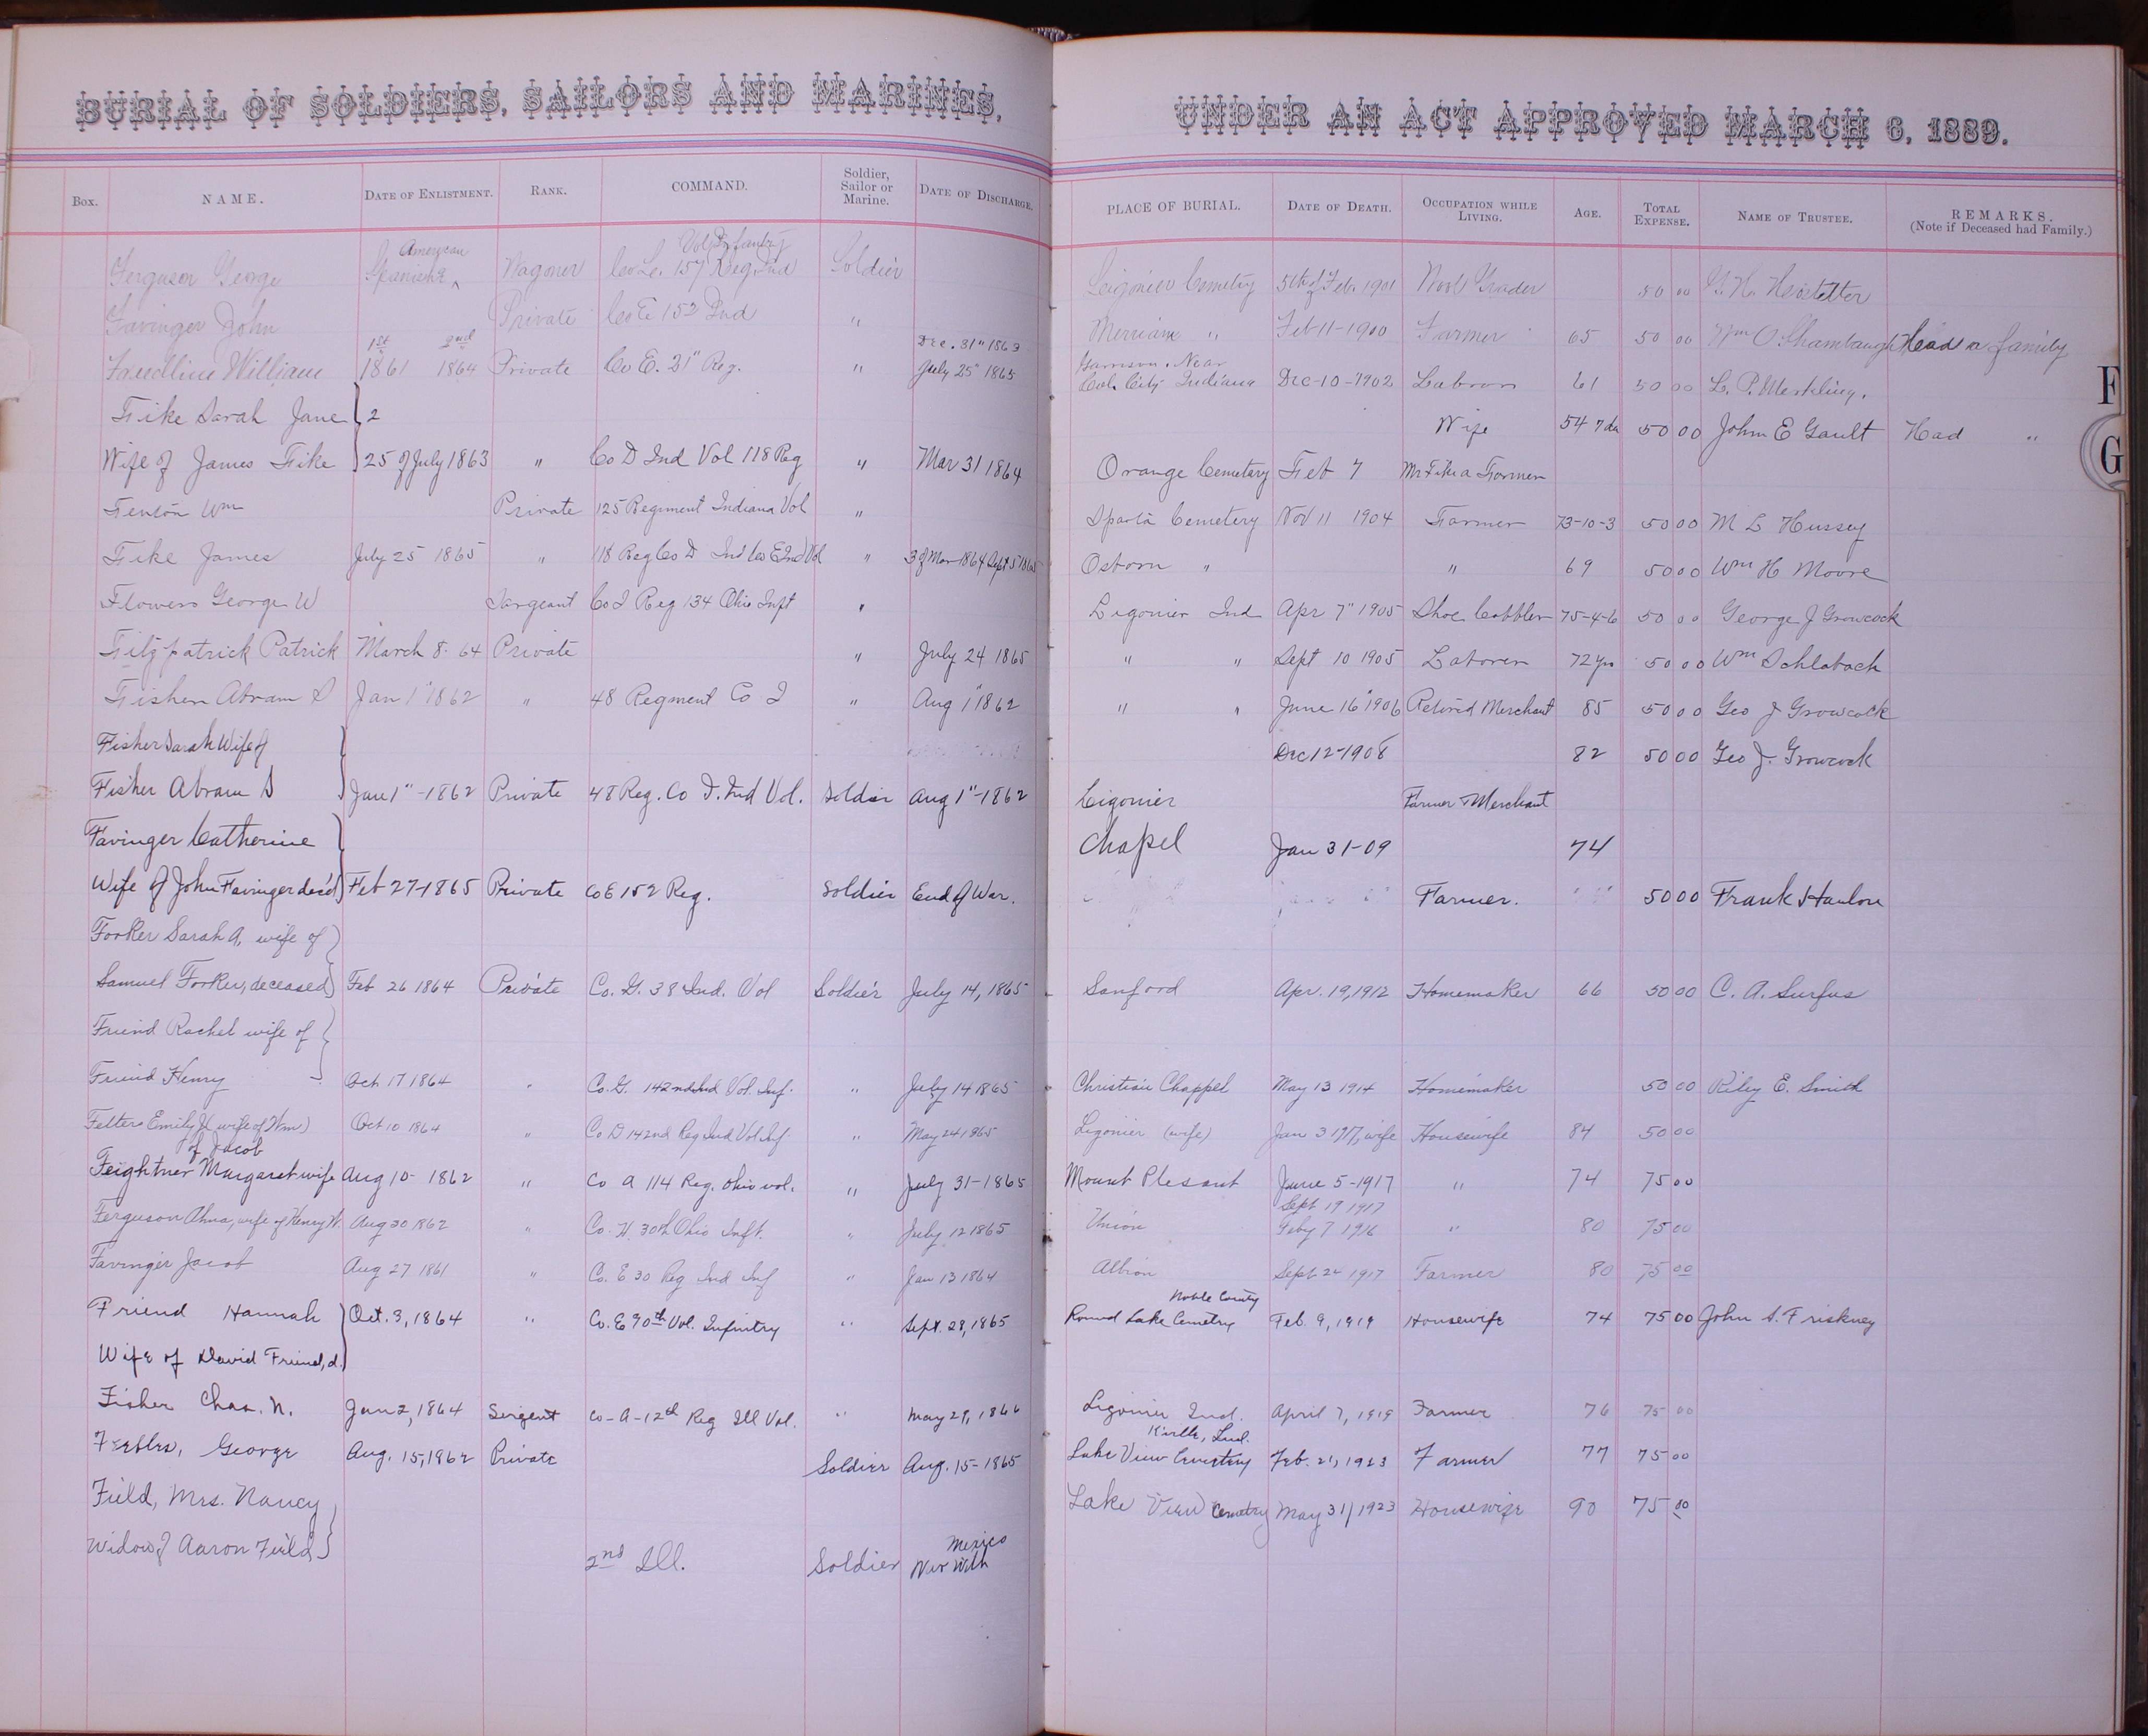 BURIAL OF SOLDIERS, SAILORS AND MARINES,
Box. NAME. DATE OF ENLISTMENT. RANK. COMMAND. Soldier, Sailor or Marine. DATE OF DISCHARGE.
American Vol Infantry
Ferguson George Spanish Wagoner Co L. 157 Reg. Ind Soldier
Favinger John Private Co E 152 Ind "
1st 2nd Dec. 31" 1863
William 1861 1864 Private Co E. 31" Reg. " July 25" 1865
Fike Sarah Jane 2
Wife of James Fike 25 of July 1863 " Co D Ind Vol 118 Reg " Mar 31 1864
Fenton Wm Private 125 Regiment Indiana Vol "
Fike James July 25 1865 " 118 Reg Co D Ind Co E Ind Vol " 3 of Mar 1864 Sept 5 1865
Flowers George W Sargeant Co I Reg 134 Ohio Inft "
Fitzpatrick Patrick March 8. 64 Private " July 24 1865
Fisher Abram S Jan 1" 1862 " 48 Regiment Co I " Aug 1" 1862
Fisher Sarah Wife of
Fisher Abram S Jan 1"-1862 Private 48 Reg. Co I. Ind Vol. Soldier Aug 1"-1862
Favinger Catherine
Wife of John Favinger dec'd Feb 27-1865 Private Co E 152 Reg. Soldier End of War.
Forker Sarah A, wife of
Samuel Forker, deceased Feb 26 1864 Private Co. G. 38 Ind. Vol Soldier July 14, 1865
Friend Rachel wife of
Friend Henry Oct 17 1864 " Co. G. 142nd Ind Vol. Inf. " July 14 1865
Fetters Emily J (wife of Wm) Oct 10 1864 " Co D 142nd Reg Ind Vol Inf " May 24 1865
of Jacob
Feightner Margaret wife Aug 10- 1862 " Co A 114 Reg. Ohio vol. " July 31-1865
Ferguson Alma, wife of Henry H. Aug 30 1862 " Co. H. 30th Ohio Inft. " July 12 1865
Favinger Jacob Aug 27 1861 " Co. E 30 Reg Ind Inf " Jan 13 1864
Friend Hannah Oct. 3, 1864 " Co. E 30th Vol. Infintry " Sept. 28, 1865
Wife of David Friend, d.
Fisher Chas. N. Jan 2, 1864 Sergent Co-A-12th Reg Ill Vol. " May 29, 1866
George Aug. 15, 1962 Private Soldier Aug. 15-1865
Field, Mrs. Nancy
Widow of Aaron Field 2nd Ill. Soldier War With Mexico
UNDER AN ACT APPROVED MARCH 6, 1889.
PLACE OF BURIAL. DATE OF DEATH. OCCUPATION WHILE LIVING. AGE. TOTAL EXPENSE. NAME OF TRUSTEE. REMARKS. (Note if Deceased had Family.)
Leigonier Cemetry 5th of Feb. 1901 50 00 Hostetter
Merriam " Feb 11-1900 Farmer 65 50 00 Wm O. Shambaugh Head a family
Harrison. Near
Col. City Indiana Dec-10-1902 Laborer 61 50 00 L. P.
Wife 54 7 da 50 00 John E Gault Had "
Orange Cemetary Feb 7 Mr Fike a Farmer
Sparta Cemetery Nov 11 1904 Farmer 73-10-3 50 00 M L Hussey
Osborn " " 69 50 00 Wm H Moore
Ligonier Ind Apr 7" 1905 Shoe Cobbler 75-4-6 50 00 George J Growcock
" " Sept 10 1905 Laborer 72 yrs 50 00 Wm Schlabach
" " June 16" 1906 Retired Merchant 85 50 00 Geo J Growcock
Dec 12-1908 82 50 00 Geo J. Growcock
Ligonier Farmer & Merchant
Chapel Jan 31-09 74
Farmer. 50 00 Frank Hanlon
Sanford Apr. 19, 1912 Homemaker 66 50 00 C. A. Surfus
Christian Chappel May 13 1914 Homemaker 50 00 Riley E. Smith
Ligonier (wife) Jan 3 1917, wife Housewife 84 50 00
Mount Plesant June 5-1917 " 74 75 00
Sept 19 1917
Union Feby 7 1916 " 80 75 00
Albion Sept 24 1917 Farmer 80 75 00
Noble County
Round Lake Cemetry Feb. 9, 1919 Housewife 74 75 00 John S. Friskney
Ligonier Ind. April 7, 1919 Farmer 76 75 00
K'ville, Ind.
Lake View Cemetery Feb. 21, 1923 Farmer 77 75 00
Lake View Cemetry May 31, 1923 Housewife 90 75 00
F
G